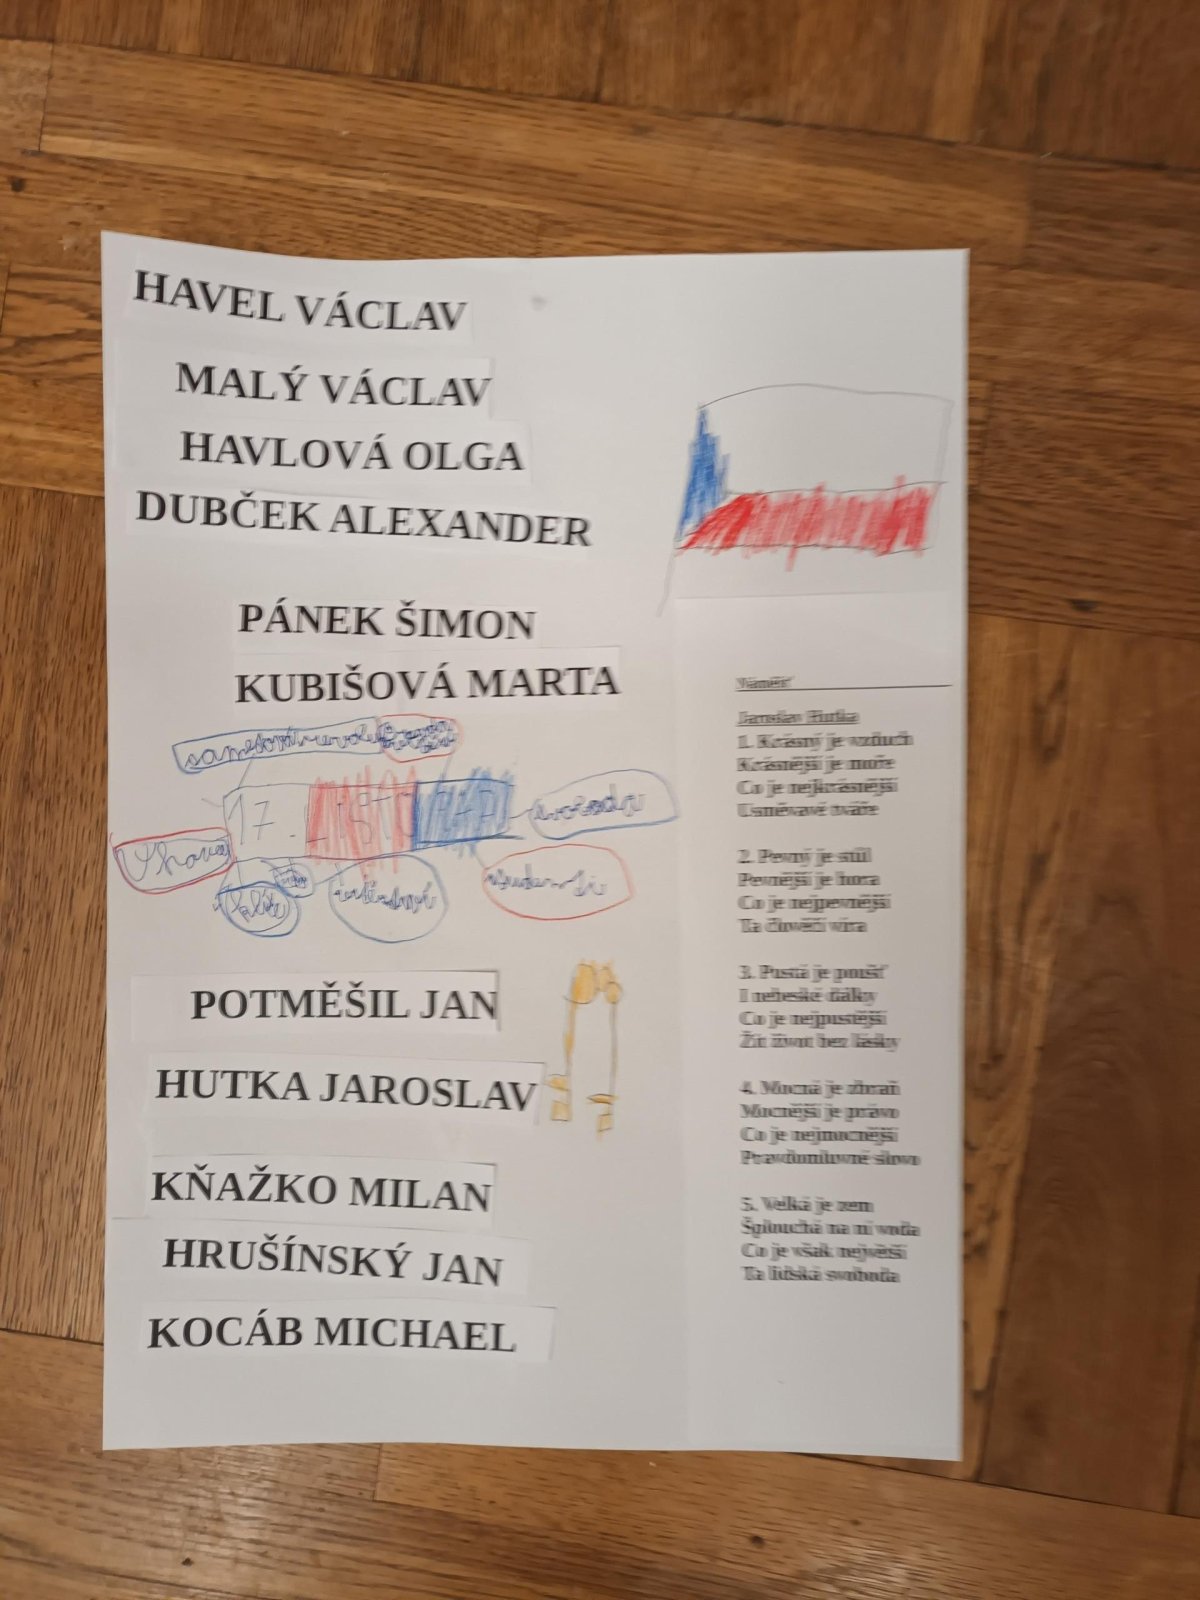 HAVEL VÁCLAV
MALÝ VÁCLAV
HAVLOVÁ OLGA
DUBČEK ALEXANDER
PÁNEK ŠIMON
KUBIŠOVÁ MARTA
17. LISTOPAD
svoboda
klíče
studenti
POTMĚŠIL JAN
HUTKA JAROSLAV
KŇAŽKO MILAN
HRUŠÍNSKÝ JAN
KOCÁB MICHAEL
Náměšť
Jaroslav Hutka
1. Krásný je vzduch
Krásnější je moře
Co je nejkrásnější
Usměvavé tváře
2. Pevný je stůl
Pevnější je hora
Co je nejpevnější
Ta člověčí víra
3. Pustá je poušť
I nebeské dálky
Co je nejpustější
Žít život bez lásky
4. Mocná je zbraň
Mocnější je právo
Co je nejmocnější
Pravdomluvné slovo
5. Velká je zem
Šplouchá na ní voda
Co je však největší
Ta lidská svoboda